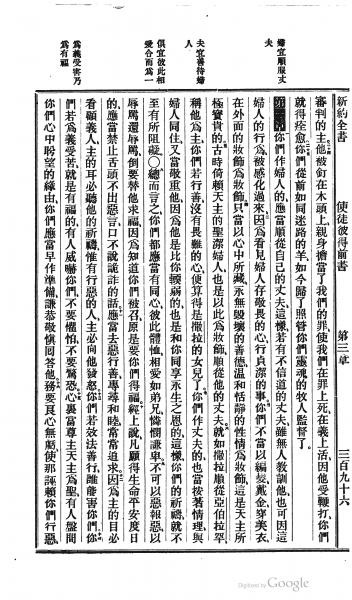 新約全書 使徒彼得前書 第三章 三百九十六
審判的主他被釘在木頭上親身擔當了我們的罪使我們在罪上死在義上活因他受鞭打你們
就得痊愈你們從前如同迷路的羊如今歸了照管你們靈魂的牧人監督了
第三章你們作婦人的應當順從自己的丈夫這樣若有不信道的丈夫雖無人教訓他也可因這
婦人的行爲被感化過來因爲看見婦人存敬畏的心行貞潔的事你們不當以編髮戴金穿美衣
在外面的妝飾爲妝飾只當以心中所藏永無毀壞的善德溫和恬靜的性情爲妝飾這是天主所
極寶貴的古時倚賴天主的聖潔婦人也是以此爲妝飾順從他的丈夫就如撒拉順從亞伯拉罕
稱他爲主你們若行善沒有畏難的心便算得是撒拉的女兒了你們作丈夫的也當按著情理與
婦人同住又當敬重他因爲他是比你輭弱的也是和你同享永生之恩的這樣你們的祈禱就不
至有所阻礙○總而言之你們都應當有同心彼此體恤相愛如弟兄憐憫謙卑不可以惡報惡以
辱罵還辱罵倒要替他求福因爲知道你們被召原是要你們得福經上說凡願得生命平安度日
的應當禁止舌頭不出惡言口不說詭詐的話應當去惡行善專尋和睦常常追求因爲主的目必
看顧義人主的耳必聽他的祈禱惟有行惡的人主必向他發怒你們若效法善行誰能害你們你
們若爲義受苦就是有福的有人威嚇你們不要懼怕不要驚恐心裏當尊主天主爲聖有人盤問
你們心中盼望的緣由你們應當早作準備謙恭敬愼回答他務要良心無虧使那誣賴你們行惡
婦宜順服丈夫
夫宜善待婦人
俱宜彼此相愛合而爲一
爲義受害乃爲有福
Digitized by Google